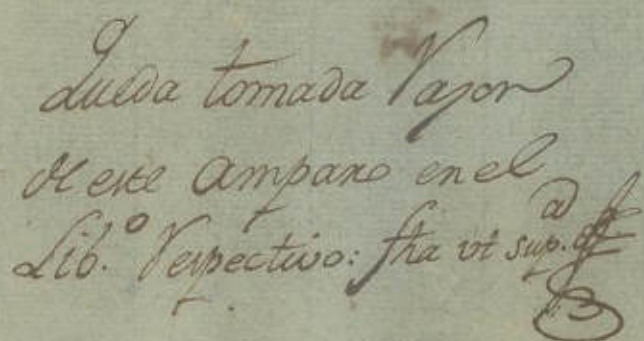 Queda tomada Razon
de este Amparo en el
Lib.º Respectivo: fha ut sup.ª